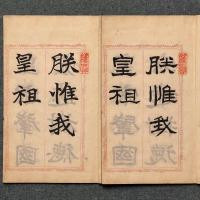 朕惟我
皇祖
朕惟我
皇祖